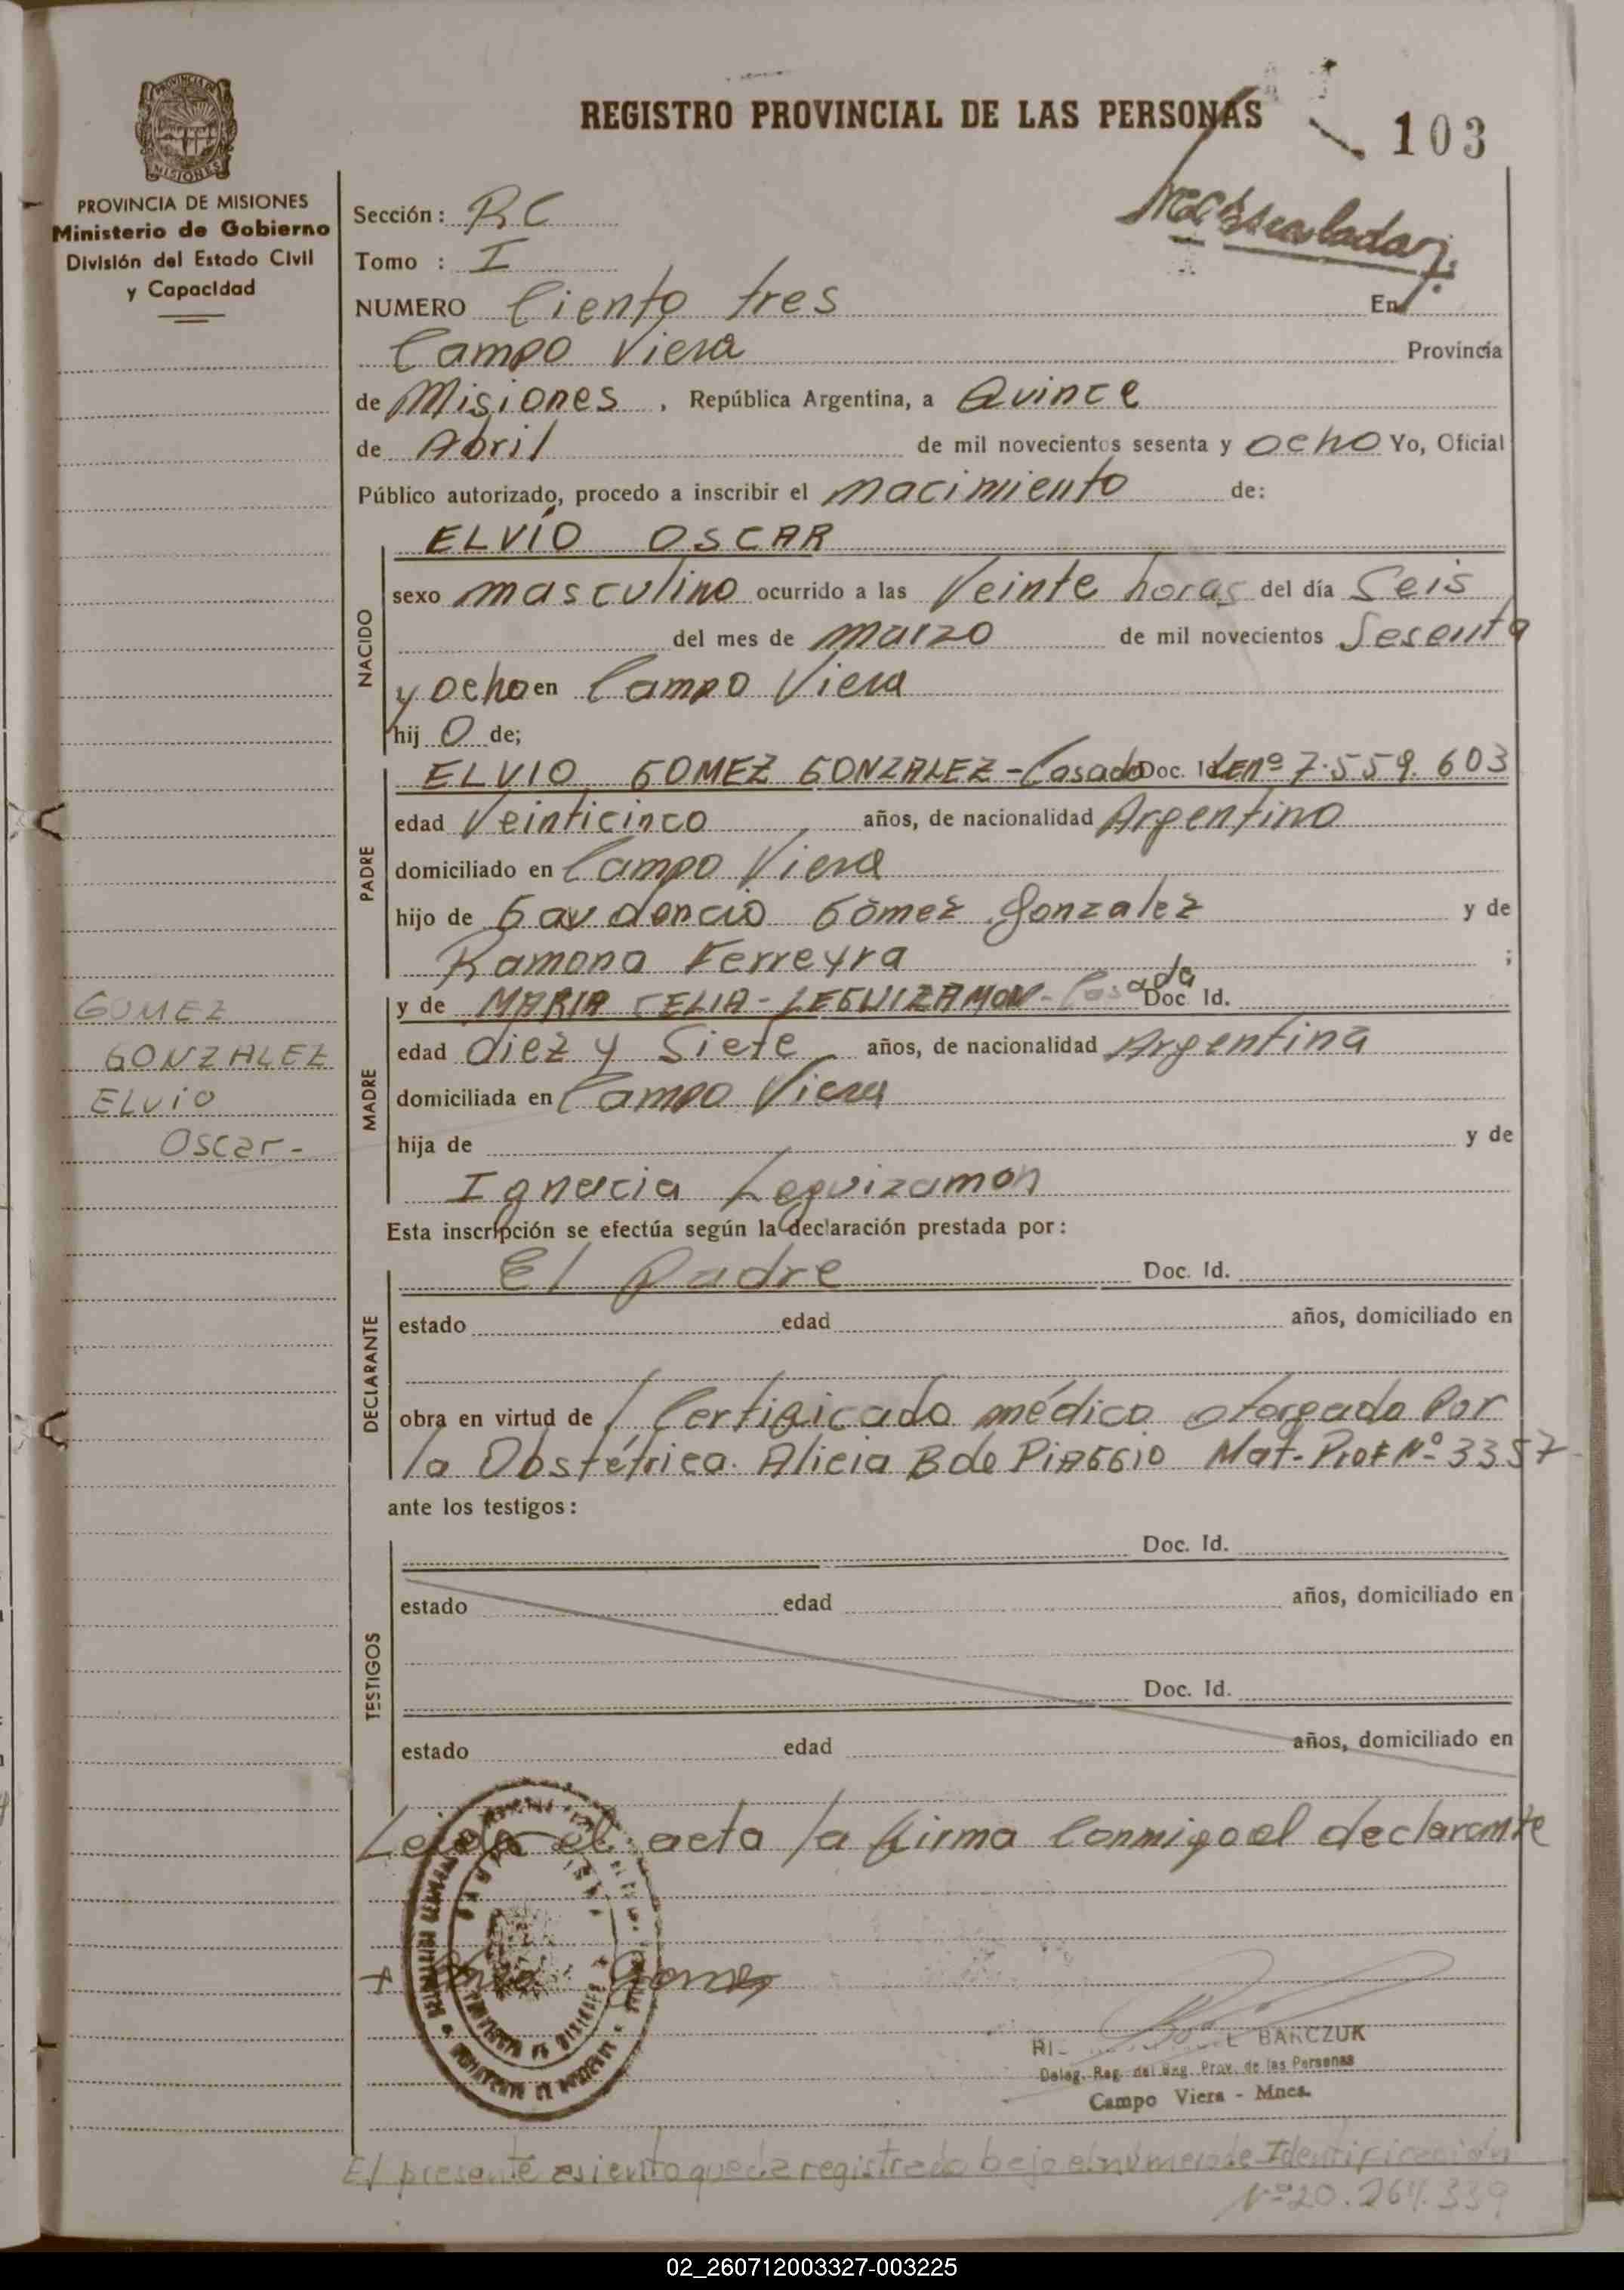 REGISTRO PROVINCIAL DE LAS PERSONAS
103
PROVINCIA DE MISIONES
Ministerio de Gobierno
División del Estado Civil
y Capacidad
Sección: RC
Tomo : I
NUMERO Ciento tres En
Campo Viera Provincia
de Misiones, República Argentina, a Quince
de Abril de mil novecientos sesenta y ocho Yo, Oficial
Público autorizado, procedo a inscribir el nacimiento de:
NACIDO
ELVÍO OSCAR
sexo masculino ocurrido a las Veinte horas del día Seis
del mes de marzo de mil novecientos Sesenta
y ocho en Campo Viera
hij o de;
PADRE
ELVIO GOMEZ GONZALEZ - Casado Doc. Id. LEnº 7.559.603
edad Veinticinco años, de nacionalidad Argentino
domiciliado en Campo Viera
hijo de Gaudencio Gómez Gonzalez y de
Ramona Ferreyra ;
MADRE
y de MARIA CELIA - LEGUIZAMON - Casada Doc. Id.
edad diez y Siete años, de nacionalidad Argentina
domiciliada en Campo Viera
hija de y de
Ignacia Leguizamon
GOMEZ
GONZALEZ
ELVIO
Oscar -
Esta inscripción se efectúa según la declaración prestada por:
DECLARANTE
El Padre Doc. Id.
estado edad años, domiciliado en
obra en virtud de / Certificado médico otorgado Por
la Obstétrica. Alicia B de PIAGGIO Mat. Prof Nº 3357
ante los testigos:
TESTIGOS
Doc. Id.
estado edad años, domiciliado en
Doc. Id.
estado edad años, domiciliado en
Leída el acta la firma Conmigo el declarante
Gomez
BARCZUK
Deleg. Reg. del Reg. Prov. de las Personas
Campo Viera - Mnes.
El presente asiento queda registrado bajo el número de Identificación
Nº 20.264.339
02_260712003327-003225